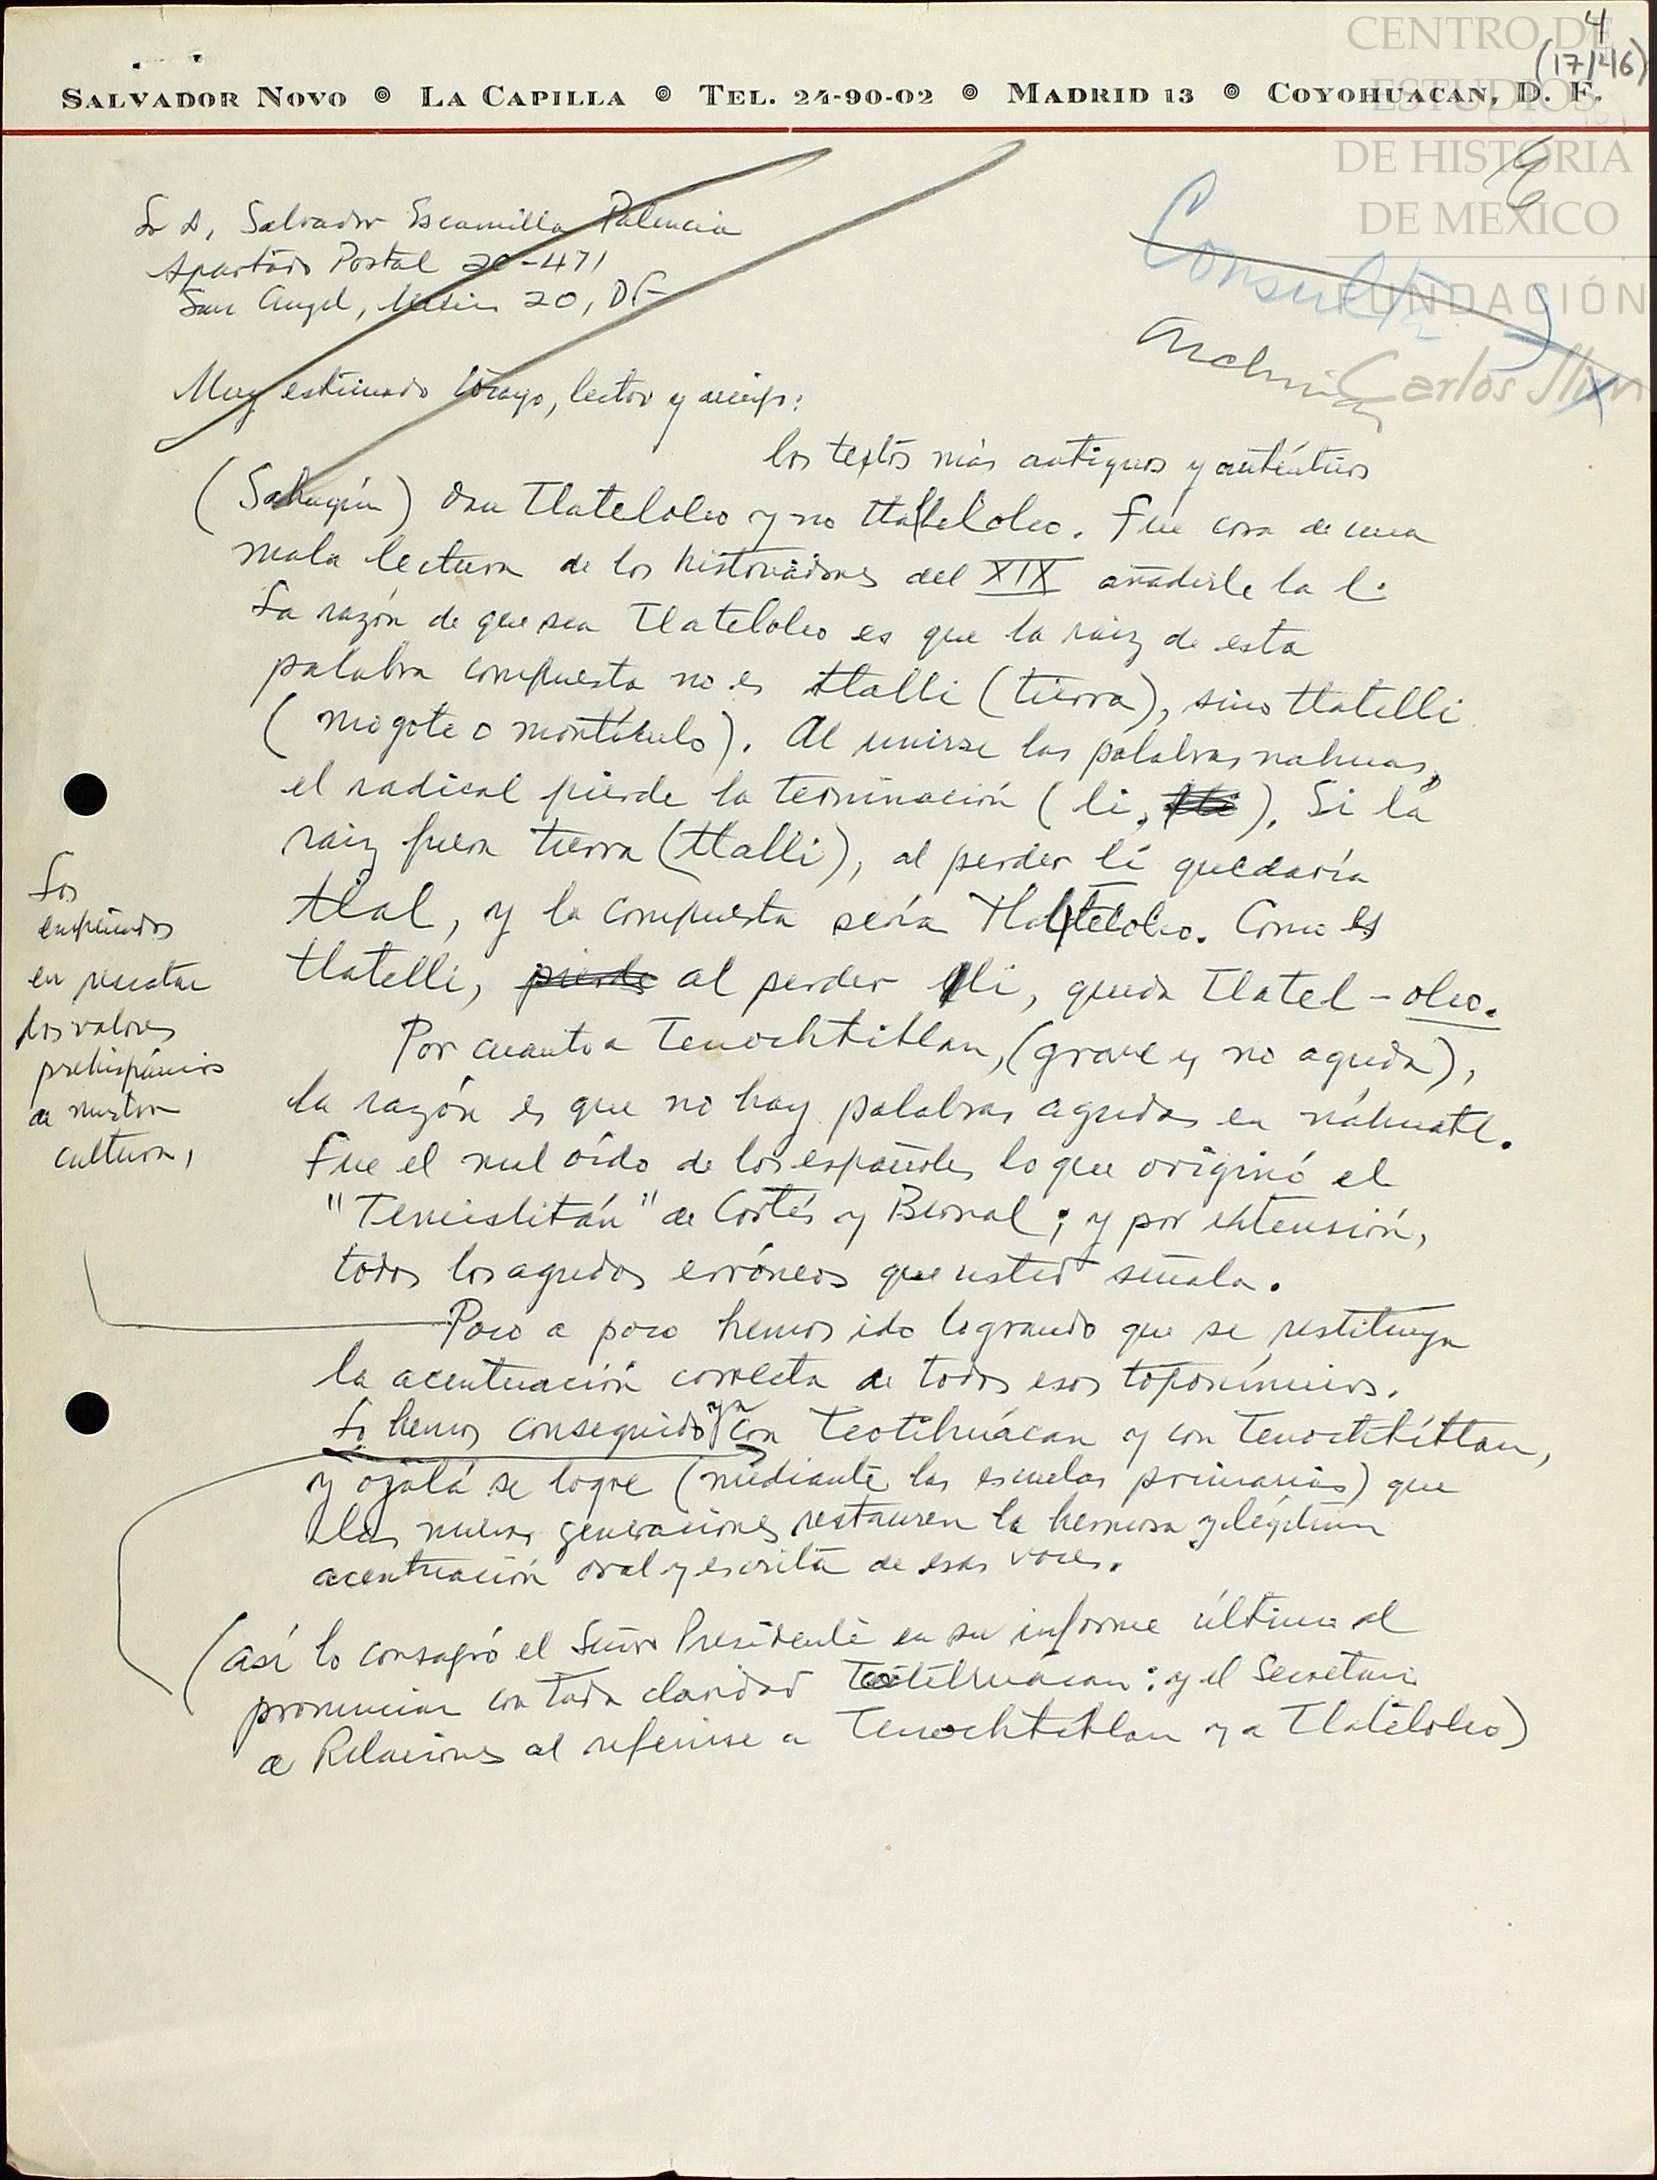 4
(17/46)
SALVADOR NOVO ◎ LA CAPILLA ◎ TEL. 24-90-02 ◎ MADRID 13 ◎ COYOHUACAN, D. F.
CENTRO DE
ESTUDIOS
DE HISTORIA
DE MEXICO
FUNDACIÓN
Carlos Slim
Consulta
Archivo
Sr D, Salvador Escamilla Palencia
Apartado Postal 20-471
San Angel, México 20, DF
Muy estimado tocayo, lector y amigo:
los textos más antiguos y auténticos
(Sahagún) dan Tlatelolco y no tlaltelolco. Fue cosa de una
mala lectura de los historiadores del XIX añadirle la l.
La razón de que sea Tlatelolco es que la raiz de esta
palabra compuesta no es tlalli (tierra), sino tlatelli
(mogote o montículo). Al unirse las palabras nahuas,
el radical pierde la terminación (li, ). Si la
raiz fuera tierra (tlalli), al perder li quedaría
tlal, y la compuesta sería Tlaltelolco. Como es
tlatelli, pierde al perder li, queda Tlatel-olco.
Por cuanto a Tenochtitlan, (grave y no aguda),
la razón es que no hay palabras agudas en náhuatl.
Fue el mal oído de los españoles lo que originó el
"Temistitán" de Cortés y Bernal; y por extensión,
todos los agudos erróneos que usted señala.
Los
empeñados
en rescatar
los valores
prehispánicos
de nuestra
cultura,
Poco a poco hemos ido logrando que se restituya
la acentuación correcta de todos esos toponímicos.
Lo hemos conseguido ya con Teotihuácan y con Tenochtítlan,
y ojalá se logre (mediante las escuelas primarias) que
las nuevas generaciones restauren la hermosa y legítima
acentuación oral y escrita de esas voces.
(así lo consagró el Señor Presidente en su informe último al
pronunciar con toda claridad Teotihuácan; y el Secretario
de Relaciones al referirse a Tenochtitlan y a Tlatelolco)